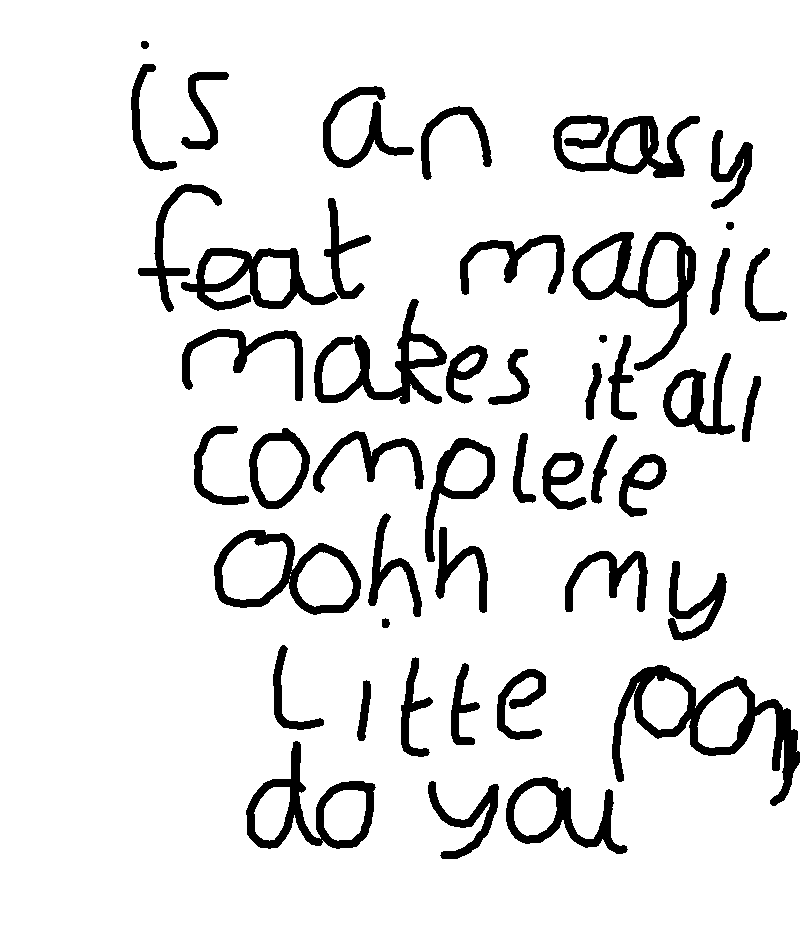 is an easy
feat magic
makes it all
complete
oohh my
Litte pony
do you